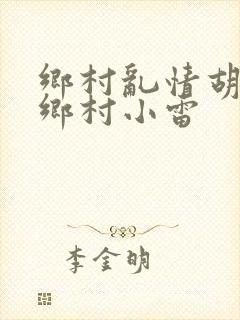 鄉村亂情胡
鄉村小雷
李金明